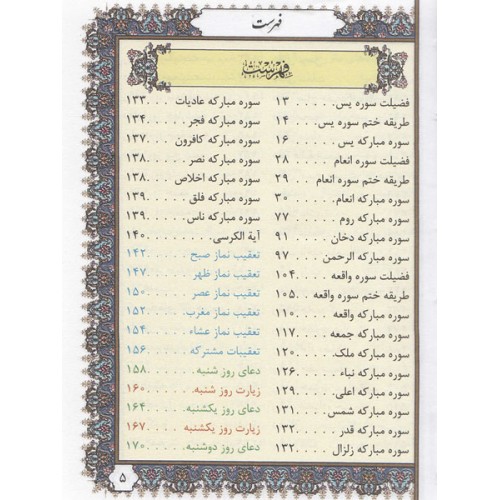 فهرست
فهرست
فضیلت سوره یس. . . . . ۱۳
طریقه ختم سوره یس. . ۱۴
سوره مبارکه یس . . . . . ۱۶
فضیلت سوره انعام . . . ۲۸
طریقه ختم سوره انعام . ۲۹
سوره مبارکه انعام. . . . ۳۰
سوره مبارکه روم . . . . . ۷۷
سوره مبارکه دخان . . . . ۹۱
سوره مبارکه الرحمن . . ۹۷
فضیلت سوره واقعه . . ۱۰۴
طریقه ختم سوره واقعه . ۱۰۵
سوره مبارکه واقعه . . . ۱۱۰
سوره مبارکه جمعه . . . ۱۱۷
سوره مبارکه ملک. . . . ۱۲۰
سوره مبارکه نباء . . . . ۱۲۶
سوره مبارکه اعلی. . . . ۱۲۹
سوره مبارکه شمس. . . ۱۳۱
سوره مبارکه قدر . . . . ۱۳۲
سوره مبارکه زلزال . . . ۱۳۲
سوره مبارکه عادیات . . . ۱۳۳
سوره مبارکه فجر . . . . ۱۳۴
سوره مبارکه کافرون . . . ۱۳۷
سوره مبارکه نصر . . . . ۱۳۸
سوره مبارکه اخلاص . . . ۱۳۸
سوره مبارکه فلق . . . . ۱۳۹
سوره مبارکه ناس. . . . ۱۳۹
آیة الکرسی. . . . . . . ۱۴۰
تعقیب نماز صبح . . . . ۱۴۲
تعقیب نماز ظهر . . . . ۱۴۷
تعقیب نماز عصر . . . . ۱۵۰
تعقیب نماز مغرب. . . . ۱۵۲
تعقیب نماز عشاء. . . . ۱۵۴
تعقیبات مشترکه . . . . ۱۵۶
دعای روز شنبه. . . . . ۱۵۸
زیارت روز شنبه. . . . . ۱۶۰
دعای روز یکشنبه. . . . ۱۶۴
زیارت روز یکشنبه . . . ۱۶۷
دعای روز دوشنبه. . . . ۱۷۰
۵